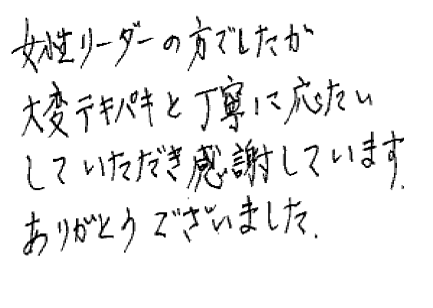 女性リーダーの方でしたが
大変テキパキと丁寧に応たい
していただき感謝しています.
ありがとうございました.